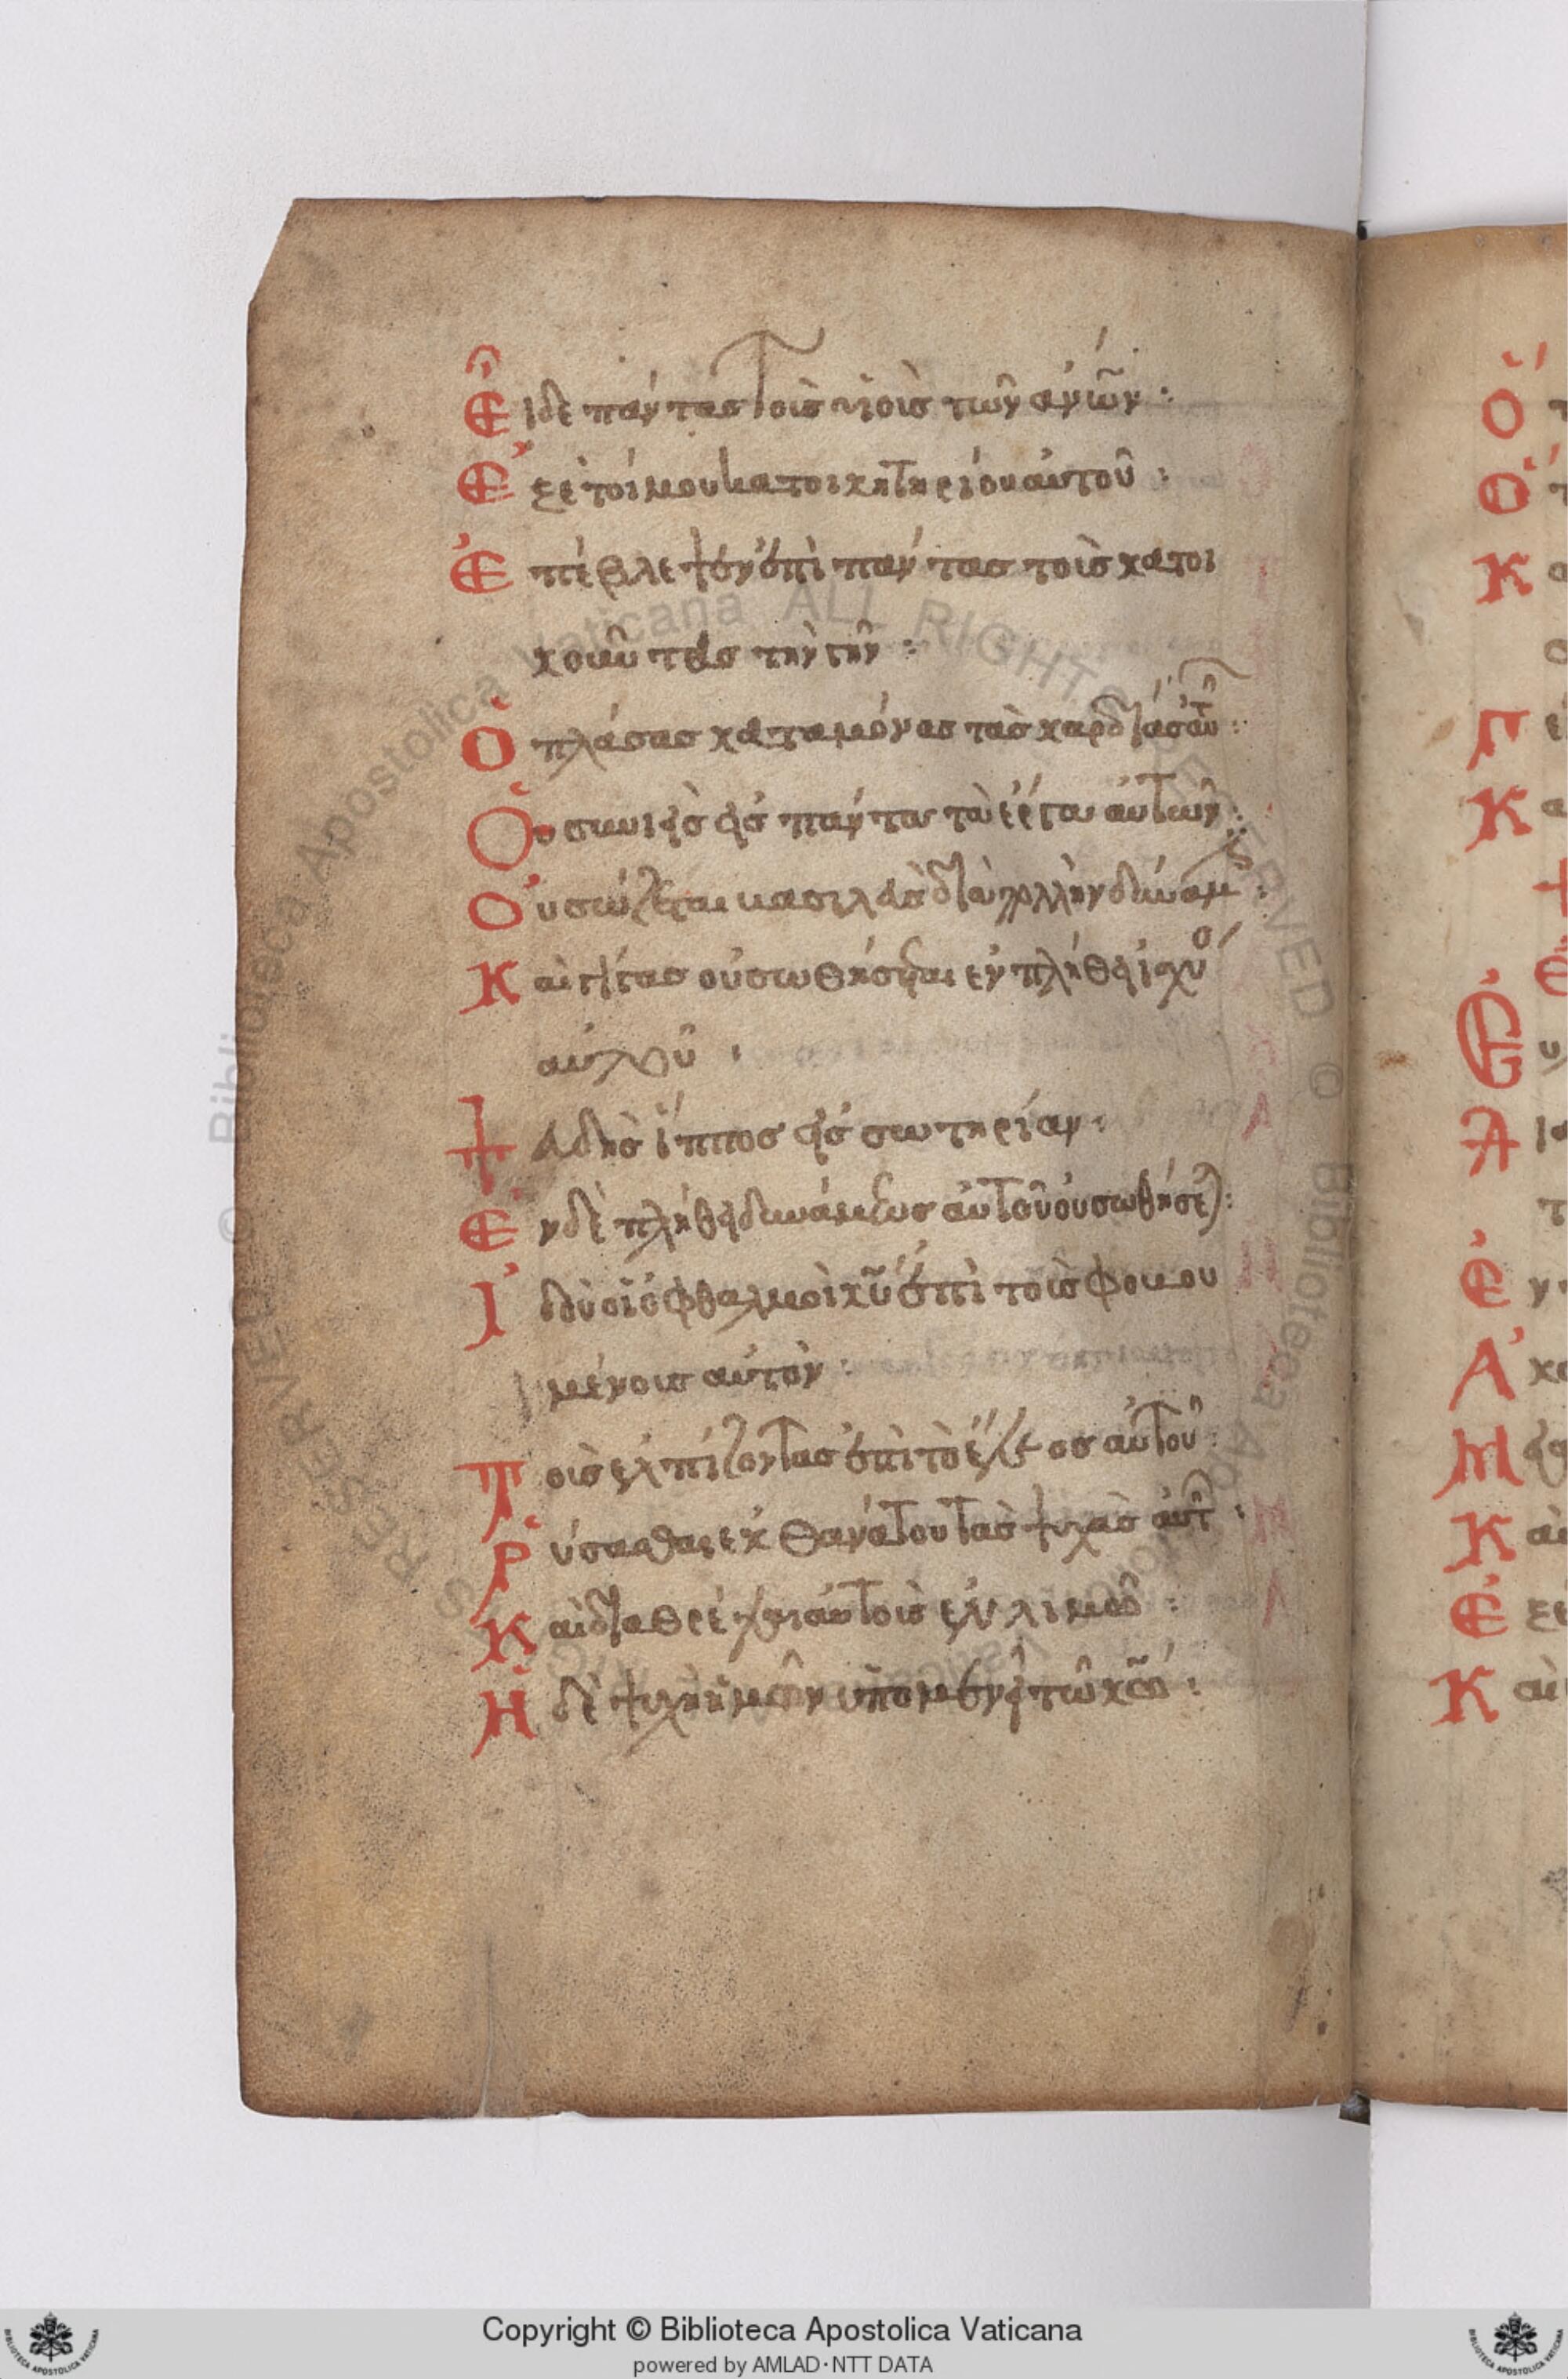 Εἶδε πάντας τοὶς υἱοὶς τῶν ἀνῶν :
Ἐξ ἑτοίμου κατοικητηρίου αὐτοῦ :
Ἐπέβλεψεν ἐπὶ πάντας τοὶς κατοι
κοῦντας τὴν γῆν :
Ὁ πλάσας καταμόνας τὰς καρδίας αὐτῶν :
Ὁ συνιεὶς εἰς πάντα τὰ ἔργα αὐτῶν :
Οὐ σώζεται βασιλεὺς διὰ πολλὴν δύναμιν :
Καὶ γίγας οὐ σωθήσεται ἐν πλήθει ἰσχύος
αὐτοῦ :
Ψευδὴς ἵππος εἰς σωτηρίαν :
Ἐν δὲ πλήθει δυνάμεως αὐτοῦ οὐ σωθήσεται :
Ἰδοὺ οἱ ὀφθαλμοὶ κῦ ἐπὶ τοὶς φοβου
μένους αὐτὸν :
Τοὶς ἐλπίζοντας ἐπὶ τὸ ἔλεος αὐτοῦ :
Ῥύσασθαι ἐκ θανάτου τὰς ψυχὰς αὐτῶν :
Καὶ διαθρέψαι αὐτοὶς ἐν λιμῶ :
Ἡ δὲ ψυχὴ ἡμῶν ὑπομενεῖ τῶ κῶ :
Copyright © Biblioteca Apostolica Vaticana
powered by AMLAD·NTT DATA